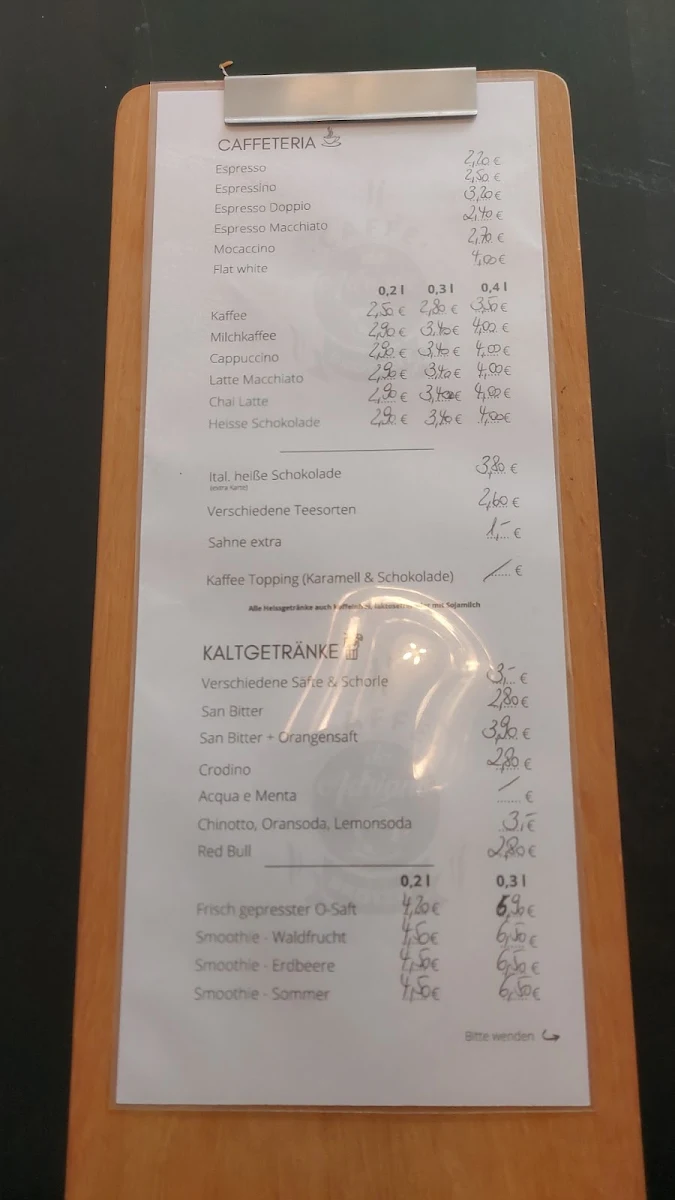 CAFFETERIA
Espresso 2,20 €
Espressino 2,50 €
Espresso Doppio 3,20 €
Espresso Macchiato 2,40 €
Mocaccino 2,70 €
Flat white 4,00 €
0,2 l 0,3 l 0,4 l
Kaffee 2,50 € 2,80 € 3,50 €
Milchkaffee 2,90 € 3,40 € 4,00 €
Cappuccino 2,90 € 3,40 € 4,00 €
Latte Macchiato 2,90 € 3,40 € 4,00 €
Chai Latte 2,90 € 3,40 € 4,00 €
Heisse Schokolade 2,90 € 3,40 € 4,00 €
Ital. heiße Schokolade 3,80 €
(extra Karte)
Verschiedene Teesorten 2,60 €
Sahne extra 1,- €
Kaffee Topping (Karamell & Schokolade) / €
Alle Heissgetränke auch koffeinfrei, laktosefrei oder mit Sojamilch
KALTGETRÄNKE
Verschiedene Säfte & Schorle 3,- €
San Bitter 2,80 €
San Bitter + Orangensaft 3,90 €
Crodino 2,80 €
Acqua e Menta / €
Chinotto, Oransoda, Lemonsoda 3,- €
Red Bull 2,80 €
0,2 l 0,3 l
Frisch gepresster O-Saft 4,20 € 6,90 €
Smoothie - Waldfrucht 4,50 € 6,50 €
Smoothie - Erdbeere 4,50 € 6,50 €
Smoothie - Sommer 4,50 € 6,50 €
Bitte wenden